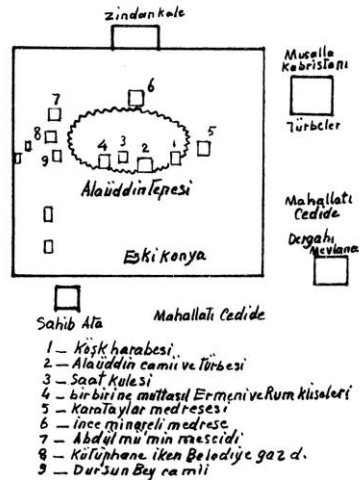 Zindankale
Musalla
Kabristanı
Türbeler
6
7
8
9
4
3
2
1
5
Alaüddin Tepesi
Mahallatı
Cedide
Dergahı
Mevlana
Eski Konya
Sahib Ata
Mahallatı Cedide
1 — Köşk harabesi
2 — Alaüddin camii ve türbesi
3 — Saat kulesi
4 — birbirine muttasıl Ermeni ve Rum kliseleri
5 — Karataylar medresesi
6 — İnce minareli medrese
7 — Abdül mü'min mescidi
8 — Kütüphane iken Belediye gaz d.
9 — Dursun Bey camii